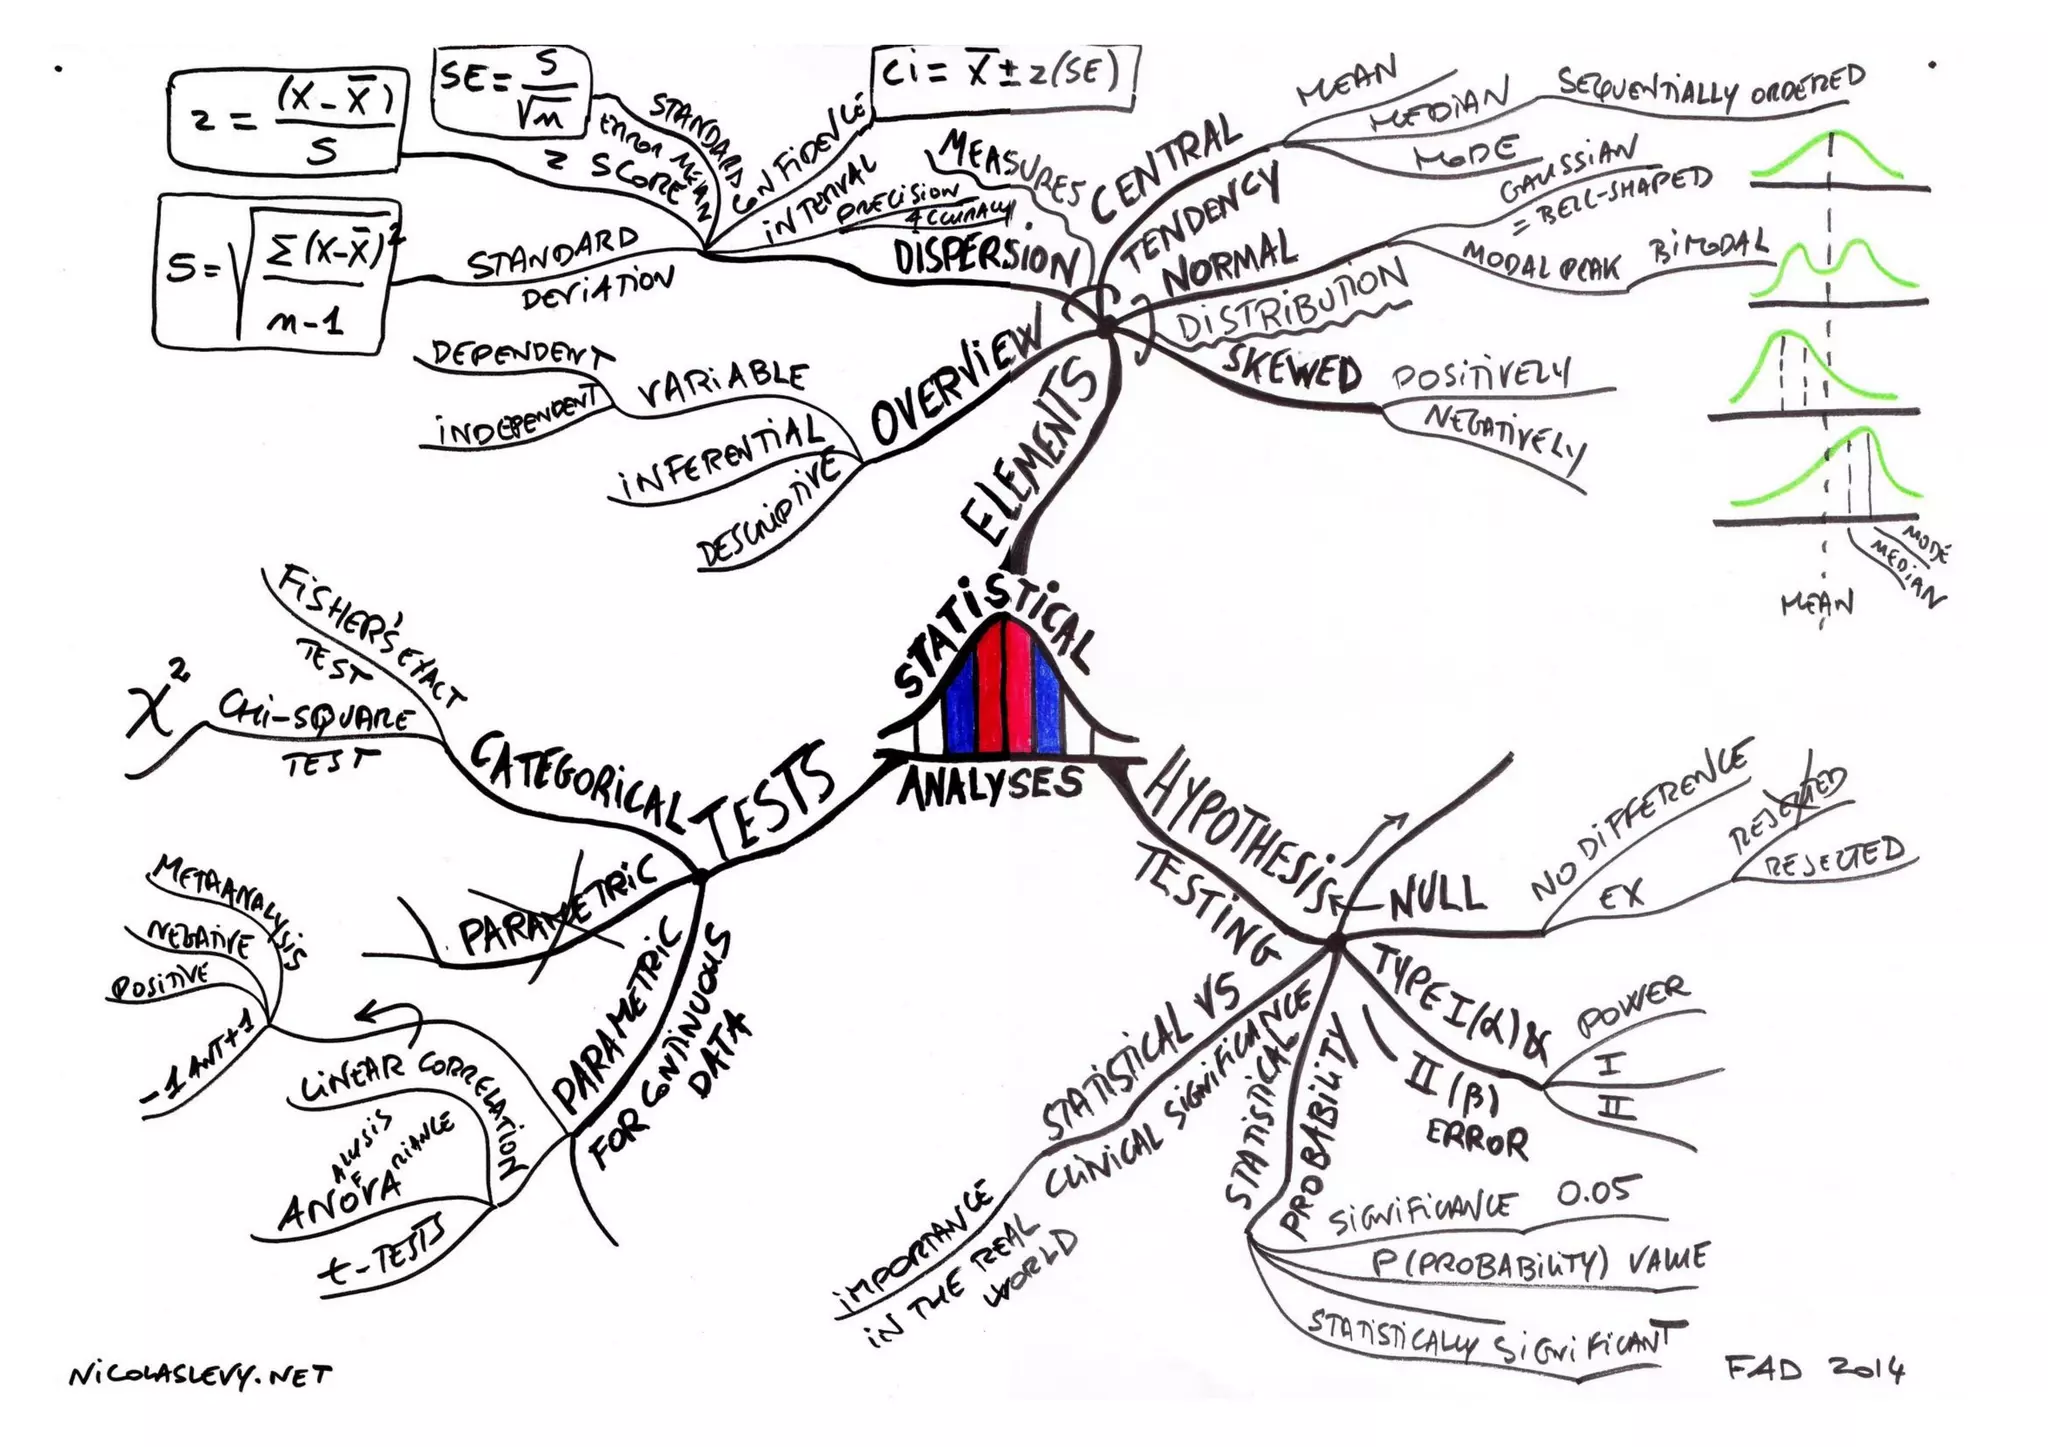 z = (x - x̄) / S
SE = S / √n
Ci = x̄ ± z(SE)
STANDARD
ERROR MEAN
Z SCORE
CONFIDENCE
INTERVAL
PRECISION
ACCURACY
S = √ Σ(x-x̄)² / n-1
STANDARD
DEVIATION
MEASURES
DISPERSION
CENTRAL
TENDENCY
MEAN
MEDIAN
SEQUENTIALLY ORDERED
MODE
NORMAL
DISTRIBUTION
GAUSSIAN
= BELL-SHAPED
MODAL PEAK
BIMODAL
SKEWED
POSITIVELY
NEGATIVELY
MODE
MEDIAN
MEAN
OVERVIEW
VARIABLE
DEPENDENT
INDEPENDENT
INFERENTIAL
DESCRIPTIVE
ELEMENTS
STATISTICAL
ANALYSES
TESTS
CATEGORICAL
FISHER'S EXACT
TEST
CHI-SQUARE
TEST
χ²
PARAMETRIC
PARAMETRIC
FOR CONTINUOUS
DATA
METAANALYSIS
NEGATIVE
POSITIVE
-1 ANT +1
LINEAR CORRELATION
ANOVA
ALYSIS
F
RIANCE
t-TESTS
HYPOTHESIS
TESTING
NULL
NO DIFFERENCE
EX
REJECTED
REJECTED
TYPE I (α) &
II (β)
ERROR
POWER
I
II
STATISTICAL VS
CLINICAL SIGNIFICANCE
IMPORTANCE
IN THE REAL
WORLD
STATISTICAL
PROBABILITY
SIGNIFICANCE 0.05
P (PROBABILITY) VALUE
STATISTICALLY SIGNIFICANT
NICOLASLEVY.NET
FAD 2014